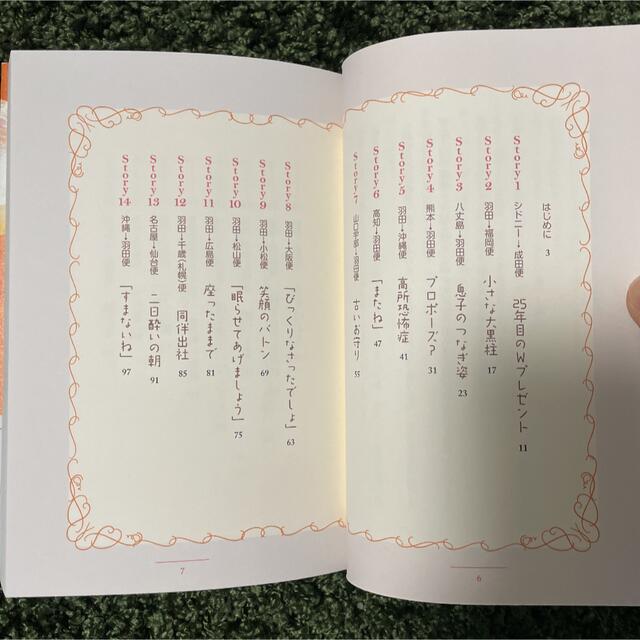 はじめに 3
Story 1 シドニー→成田便 25年目のWプレゼント 11
Story 2 羽田→福岡便 小さな大黒柱 17
Story 3 八丈島→羽田便 息子のつなぎ姿 23
Story 4 熊本→羽田便 プロポーズ? 31
Story 5 羽田→沖縄便 高所恐怖症 41
Story 6 高知→羽田便 「またね」 47
Story 7 山口宇部→羽田便 古いお守り 55
6
Story 8 羽田→大阪便 「びっくりなさったでしょ」 63
Story 9 羽田→小松便 笑顔のバトン 69
Story 10 羽田→松山便 「眠らせてあげましょう」 75
Story 11 羽田→広島便 座ったままで 81
Story 12 羽田→千歳(札幌)便 同伴出社 85
Story 13 名古屋→仙台便 二日酔いの朝 91
Story 14 沖縄→羽田便 「すまないね」 97
7